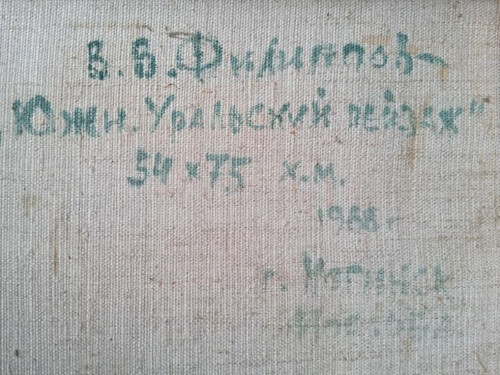 В.В. Филиппов
„Южн. Уральский пейзаж"
54 х 75 х.м.
1988
г. Ногинск